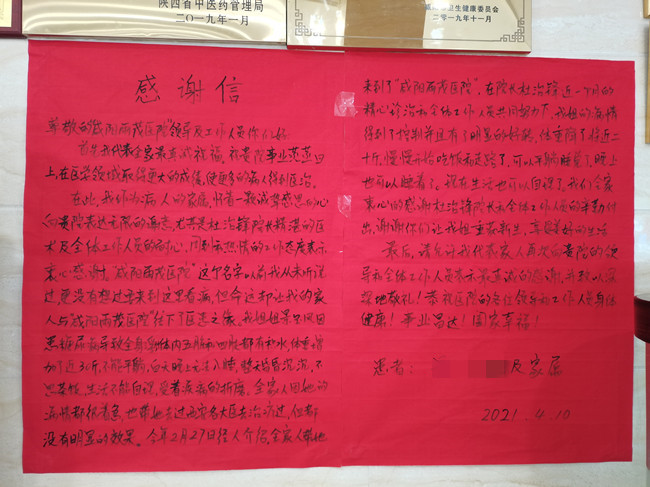 陕西省中医药管理局
二〇一九年一月
卫生健康委员会
二〇一九年十一月
感谢信
尊敬的“咸阳雨茂医院”领导及工作人员你们好
首先我代表全家最真诚祝福，祝贵院事业蒸蒸日
上，在医学领域取得更大的成绩，使更多的病人得到医治。
在此，我作为病人的家属，怀着一颗诚挚感恩的心
向贵院表达无限的谢意，尤其是杜治锋院长精湛的医
术及全体工作人员的耐心、周到和热情的工作态度表示
衷心感谢。“咸阳雨茂医院”这个名字以前我从未听说
过，更没有想过要来到这里看病，但命运却让我的家
人与“咸阳雨茂医院”结下了医患之缘。我姐姐
导致全身身体内五脏和四肢都有积水，体重增
加了近30斤，不能平躺，白天晚上无法入睡，整天昏昏沉沉，不
思茶饭，生活不能自理，受着疾病的折磨。全家人因她的
病情都很着急，也带她去过西安各大医院去治病过，但都
没有明显的效果。今年2月27日经人介绍，全家人带她
来到了“咸阳雨茂医院”，在院长杜治锋近一个月的
精心诊治和全体工作人员共同努力下，我姐的病情
得到了控制并且有了明显的好转，体重降了将近二
十斤，慢慢开始吃饭和走路了，可以平躺睡觉了，晚上
也可以睡着了。现在生活也可以自理了，我们全家
衷心的感谢杜治锋院长和全体工作人员的辛勤付
出，谢谢你们让我姐重获新生，享受美好的生活
最后，请允许我代表家人再次向贵院的领
导和全体工作人员表示最真诚的感谢，并致以深
深地敬礼！恭祝医院的各位领导和工作人员身体
健康！事业昌达！阖家幸福！
患者： 及家属
2021.4.10